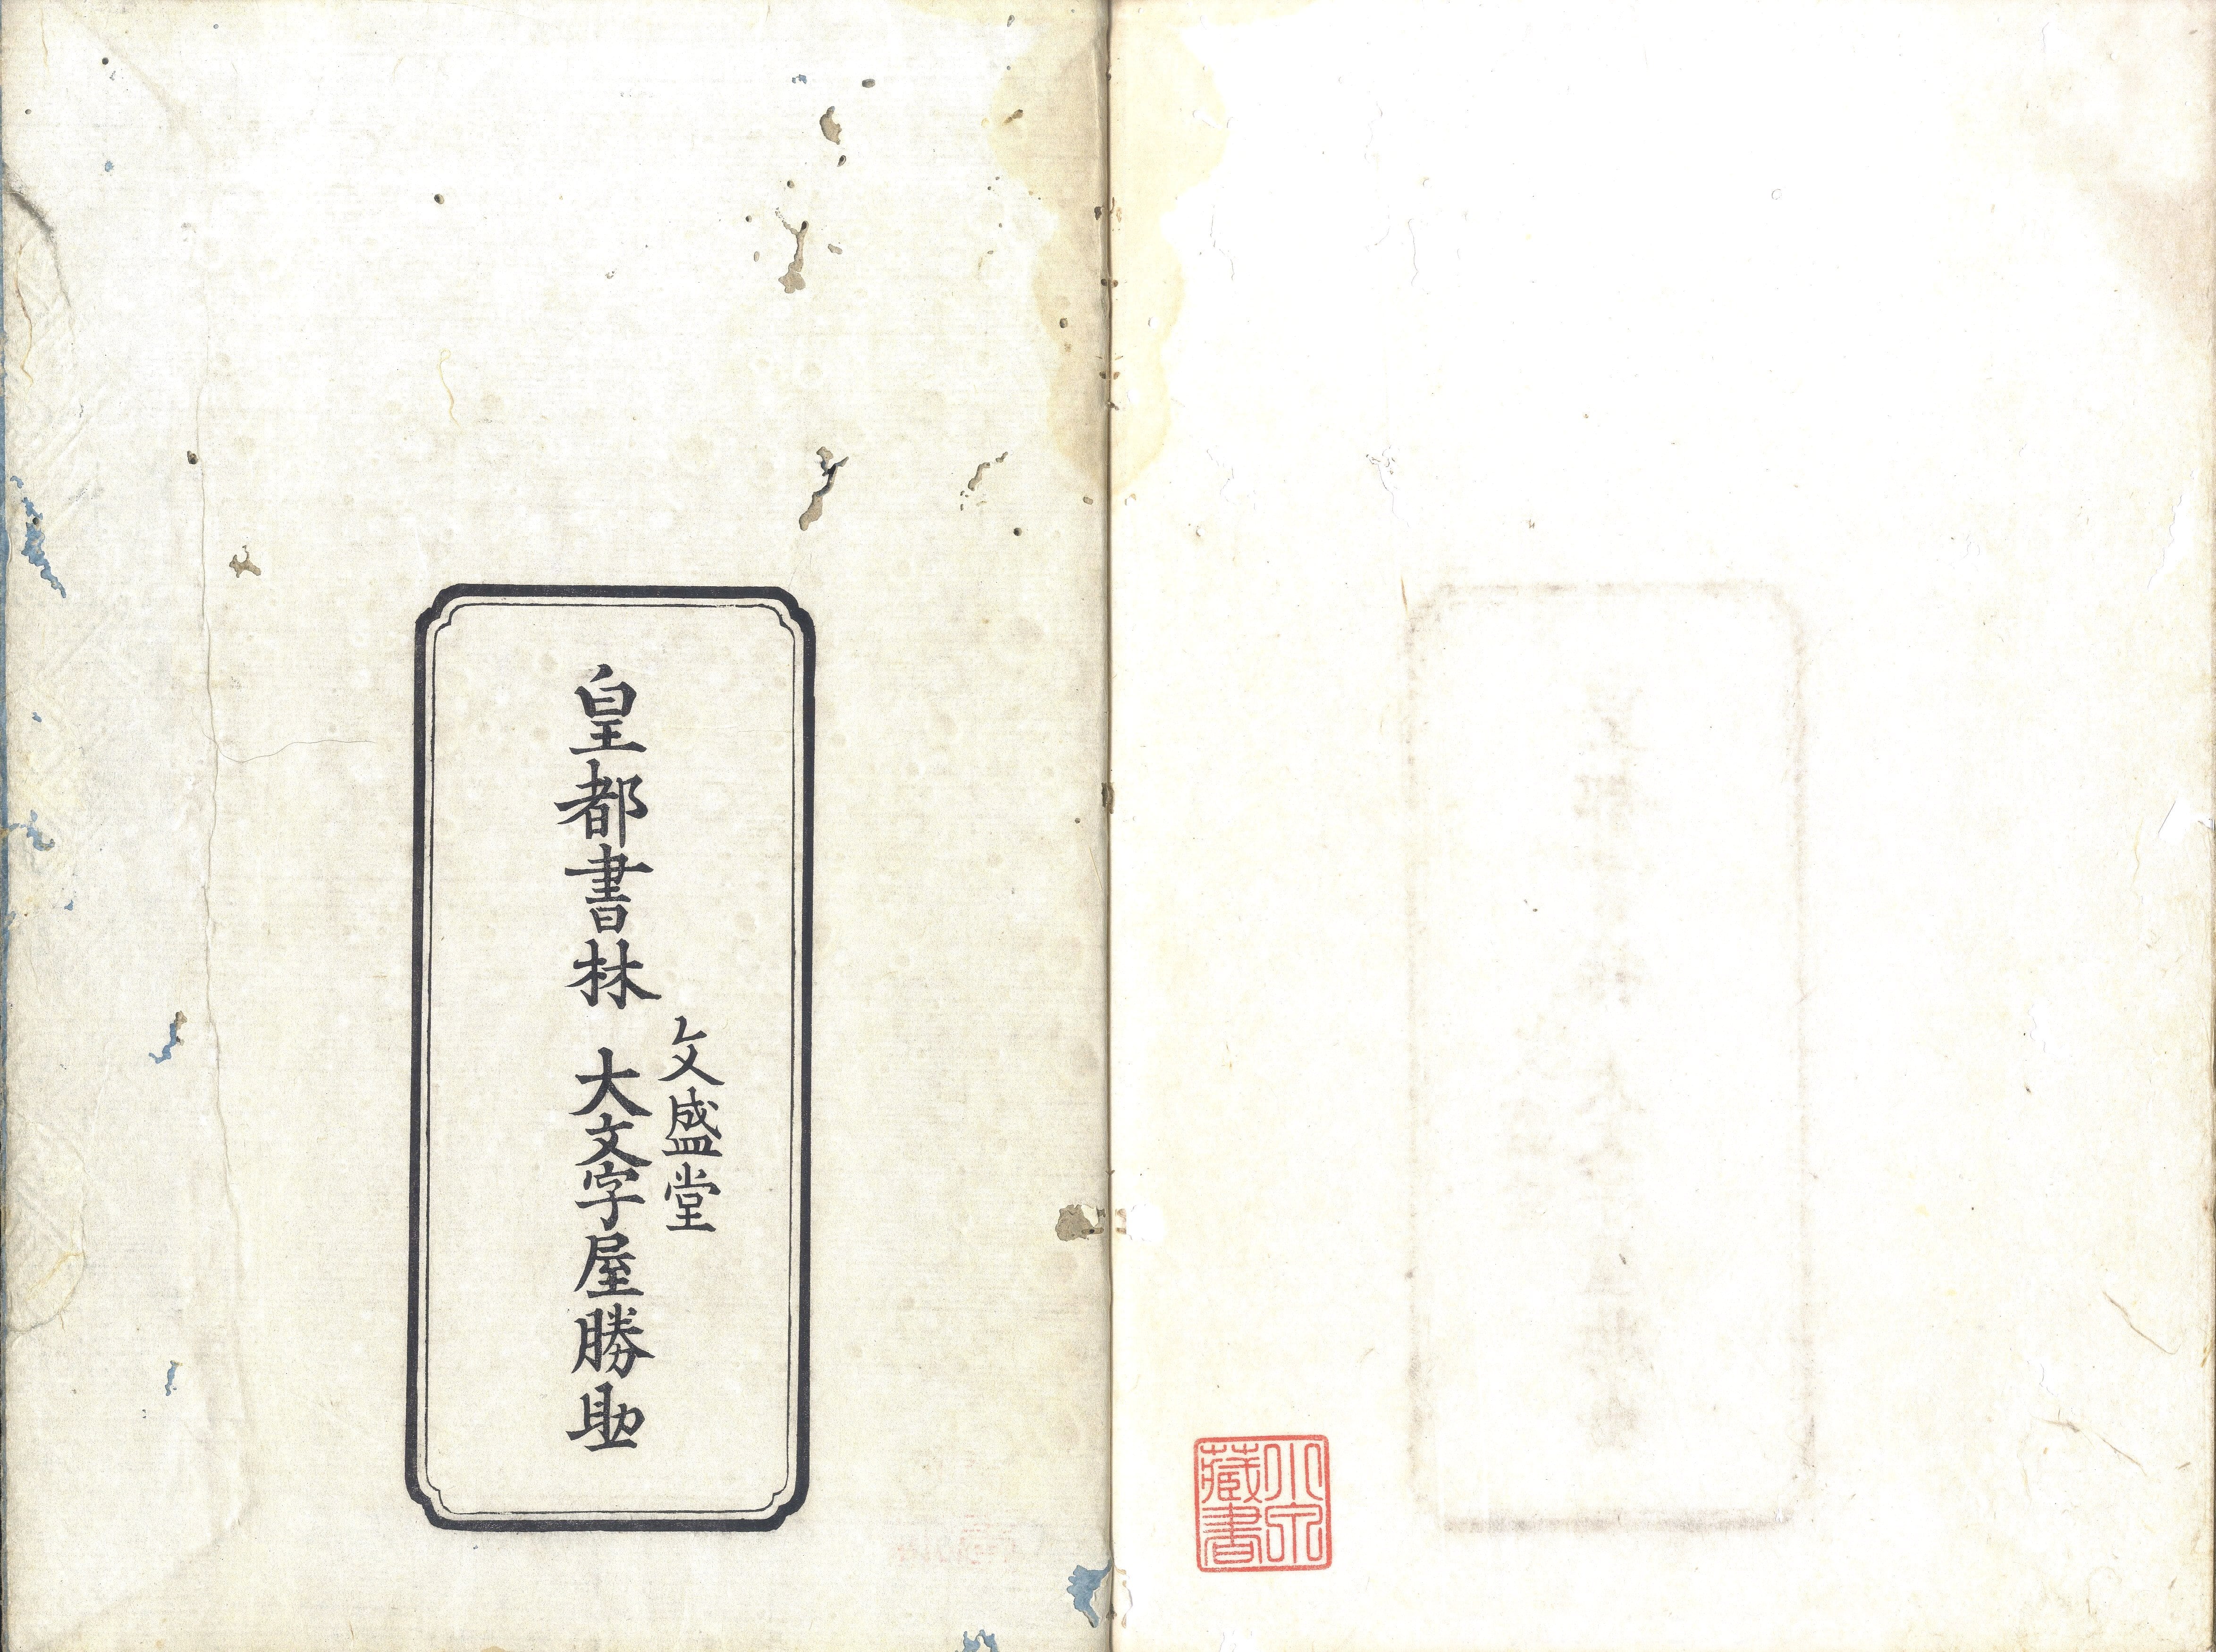 小泉
藏書
文盛堂
皇都書林 大文字屋勝助